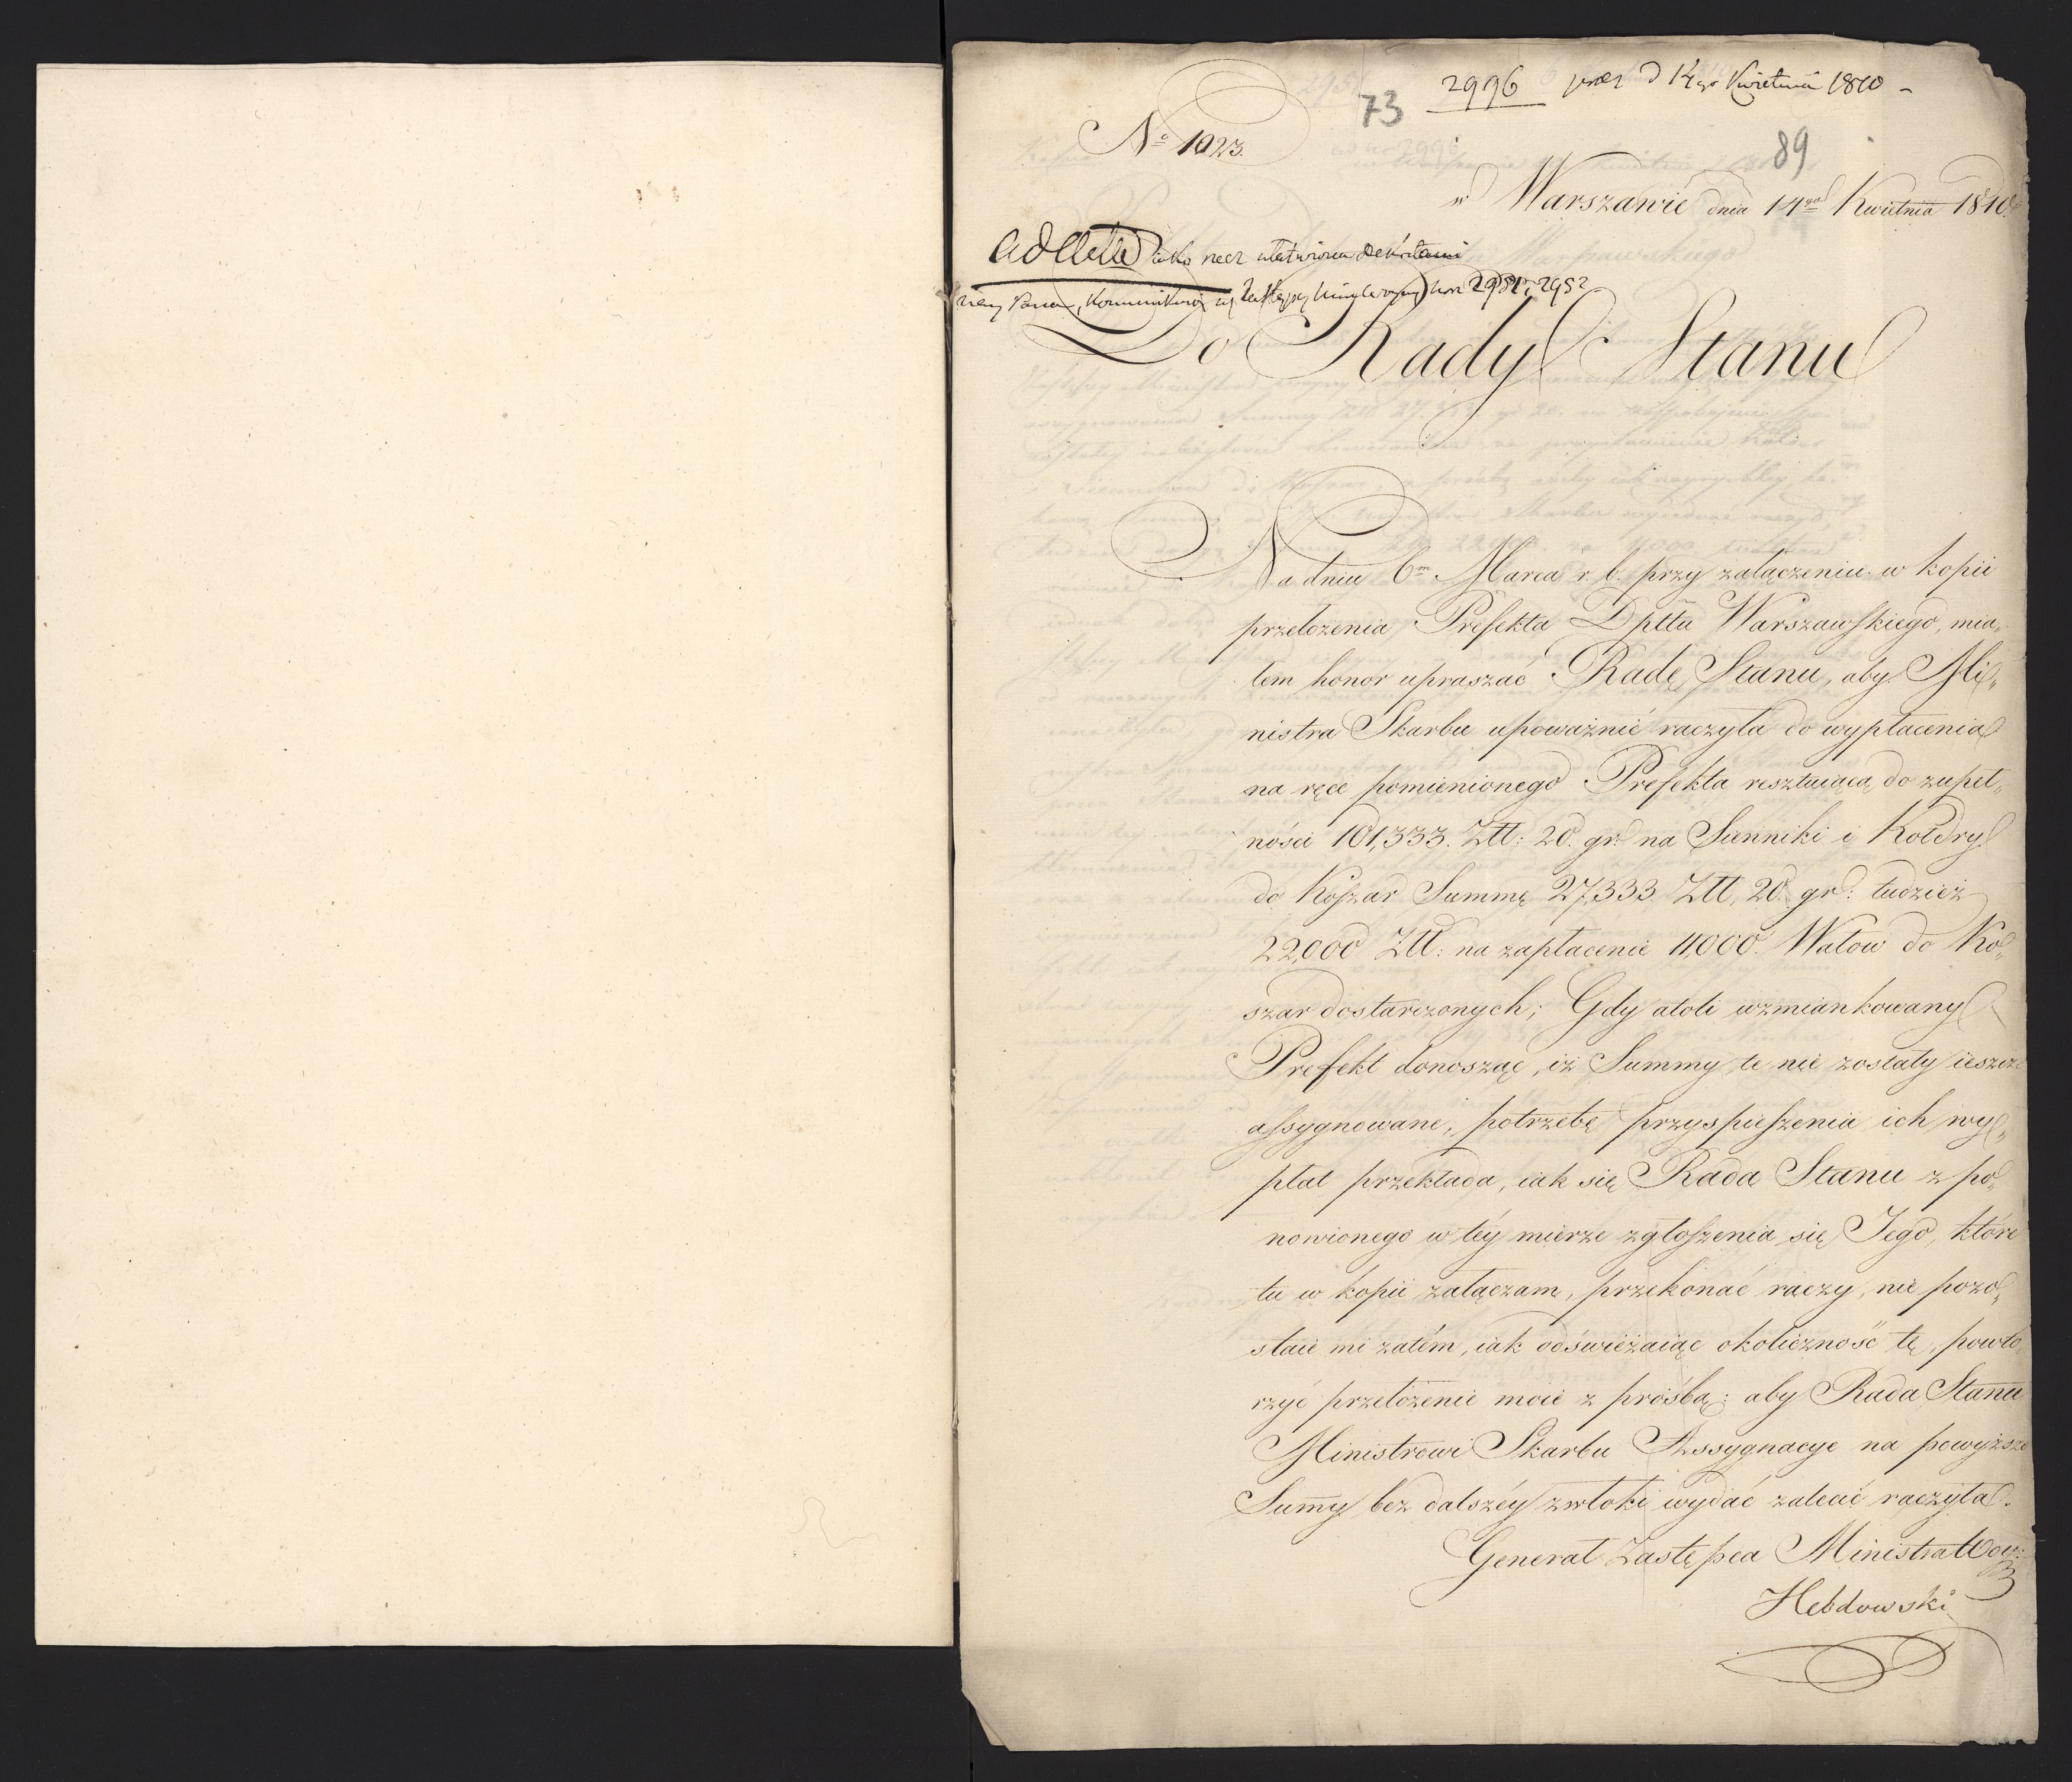 2996 prez d 14go Kwietnia 1810
73
No 1023.
89
w Warszawie dnia 14go Kwietnia 1810.
ad acta iako rzecz ułatwiona Dekretami
2981 2952
Do Rady Stanu
Na dniu 6m Marca r. b. przy załączeniu w kopii
przełożenia Prefekta Dpttu Warszawskiego, mia„
łem honor upraszać Radę Stanu, aby Mi„
nistra Skarbu upoważnić raczyła do wypłacenia
na ręce pomienionego Prefekta resztuiącą do zupeł„
ności 101,333. Złł: 20. gr: na Sienniki i Kołdry
do Koszar Summę 27,333 Złł, 20. gr: tudzież
22,000 Złł: na zapłacenie 11,000. Wałow do Ko„
szar dostarczonych; Gdy atoli wzmiankowany
Prefekt donosząc, iż Summy te nie zostały ieszcze
assygnowane, potrzebę przyspieszenia ich wy„
płat przekłada, iak się Rada Stanu z po„
nowionego w téy mierze zgłoszenia się Jego, które
tu w kopii załączam, przekonać raczy, nie pozo„
staie mi zatém, iak odświeżaiąc okoliczność tę, powtó
rzyć przełożenie moie z prośbą: aby Rada Stanu
Ministrowi Skarbu Assygnacye na powyższe
Sum̅y bez dalszéy zwłoki wydać zalecić raczyła.
Generał Zastępca Ministra Woy:
Hebdowski